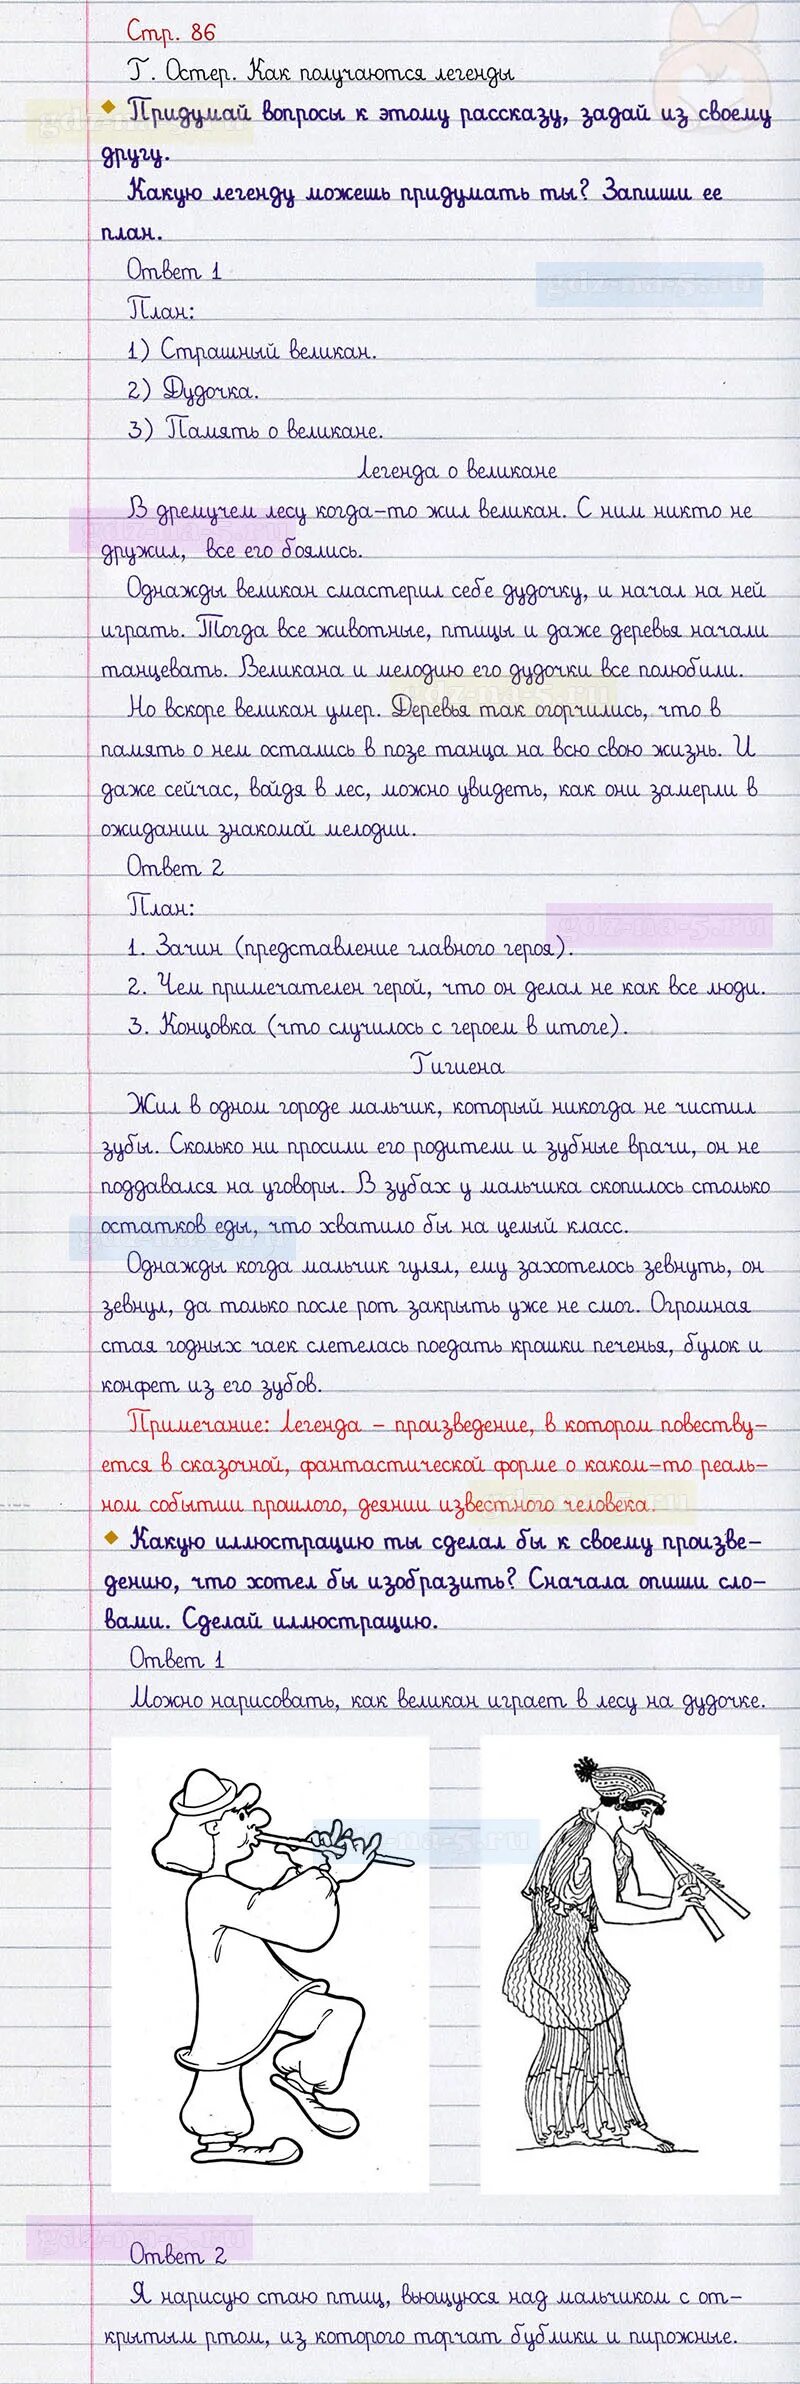 Стр. 86
Г. Остер. Как получаются легенды
Придумай вопросы к этому рассказу, задай из своему
другу.
Какую легенду можешь придумать ты? Запиши ее
план.
Ответ 1
gdz-na-5.ru
План:
1) Страшный великан.
2) Дудочка.
3) Память о великане.
Легенда о великане
В дремучем лесу когда-то жил великан. С ним никто не
дружил, все его боялись.
Однажды великан смастерил себе дудочку, и начал на ней
играть. Тогда все животные, птицы и даже деревья начали
танцевать. Великана и мелодию его дудочки все полюбили.
Но вскоре великан умер. Деревья так огорчились, что в
память о нем остались в позе танца на всю свою жизнь. И
даже сейчас, войдя в лес, можно увидеть, как они замерли в
ожидании знакомой мелодии.
Ответ 2
План:
gdz-na-5.ru
1. Зачин (представление главного героя).
2. Чем примечателен герой, что он делал не как все люди.
3. Концовка (что случилось с героем в итоге).
Гигиена
Жил в одном городе мальчик, который никогда не чистил
зубы. Сколько ни просили его родители и зубные врачи, он не
поддавался на уговоры. В зубах у мальчика скопилось столько
остатков еды, что хватило бы на целый класс.
Однажды когда мальчик гулял, ему захотелось зевнуть, он
зевнул, да только после рот закрыть уже не смог. Огромная
стая годных чаек слетелась поедать крошки печенья, булок и
конфет из его зубов.
Примечание: Легенда – произведение, в котором повеству-
ется в сказочной, фантастической форме о каком-то реаль-
ном событии прошлого, деянии известного человека.
Какую иллюстрацию ты сделал бы к своему произве-
дению, что хотел бы изобразить? Сначала опиши сло-
вами. Сделай иллюстрацию.
Ответ 1
Можно нарисовать, как великан играет в лесу на дудочке.
gdz-na-5.ru
Ответ 2
Я нарисую стаю птиц, вьющуюся над мальчиком с от-
крытым ртом, из которого торчат бублики и пирожные.